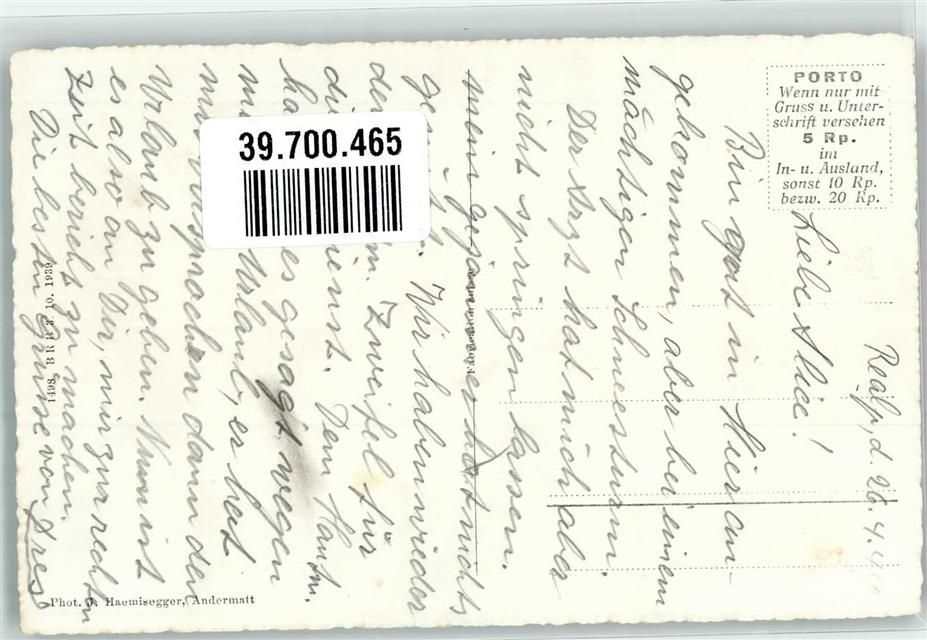 PORTO
Wenn nur mit
Gruss u. Unter-
schrift versehen
5 Rp.
im
In- u. Ausland,
sonst 10 Rp.
bezw. 20 Rp.
Realp, d. 26.4.44
Liebe Alice!
Bin gut in Hier an-
gekommen, aber bei einem
mächtigen Schneesturm.
Der Arzt hat mich aber
nicht springen lassen.
mein gejammer hat nichts
Wir haben wieder
Zweifel für
Dem Hautm.
es gesagt wegen
Urlaub, er hat
versprochen dann den
Urlaub zu geben. Nun ist
es also an Dir, mir zur rechten
Zeit bericht zu machen.
Die besten Grüsse von
39.700.465
1498 BRB 3. 10. 1939
Phot. J. Haemisegger, Andermatt